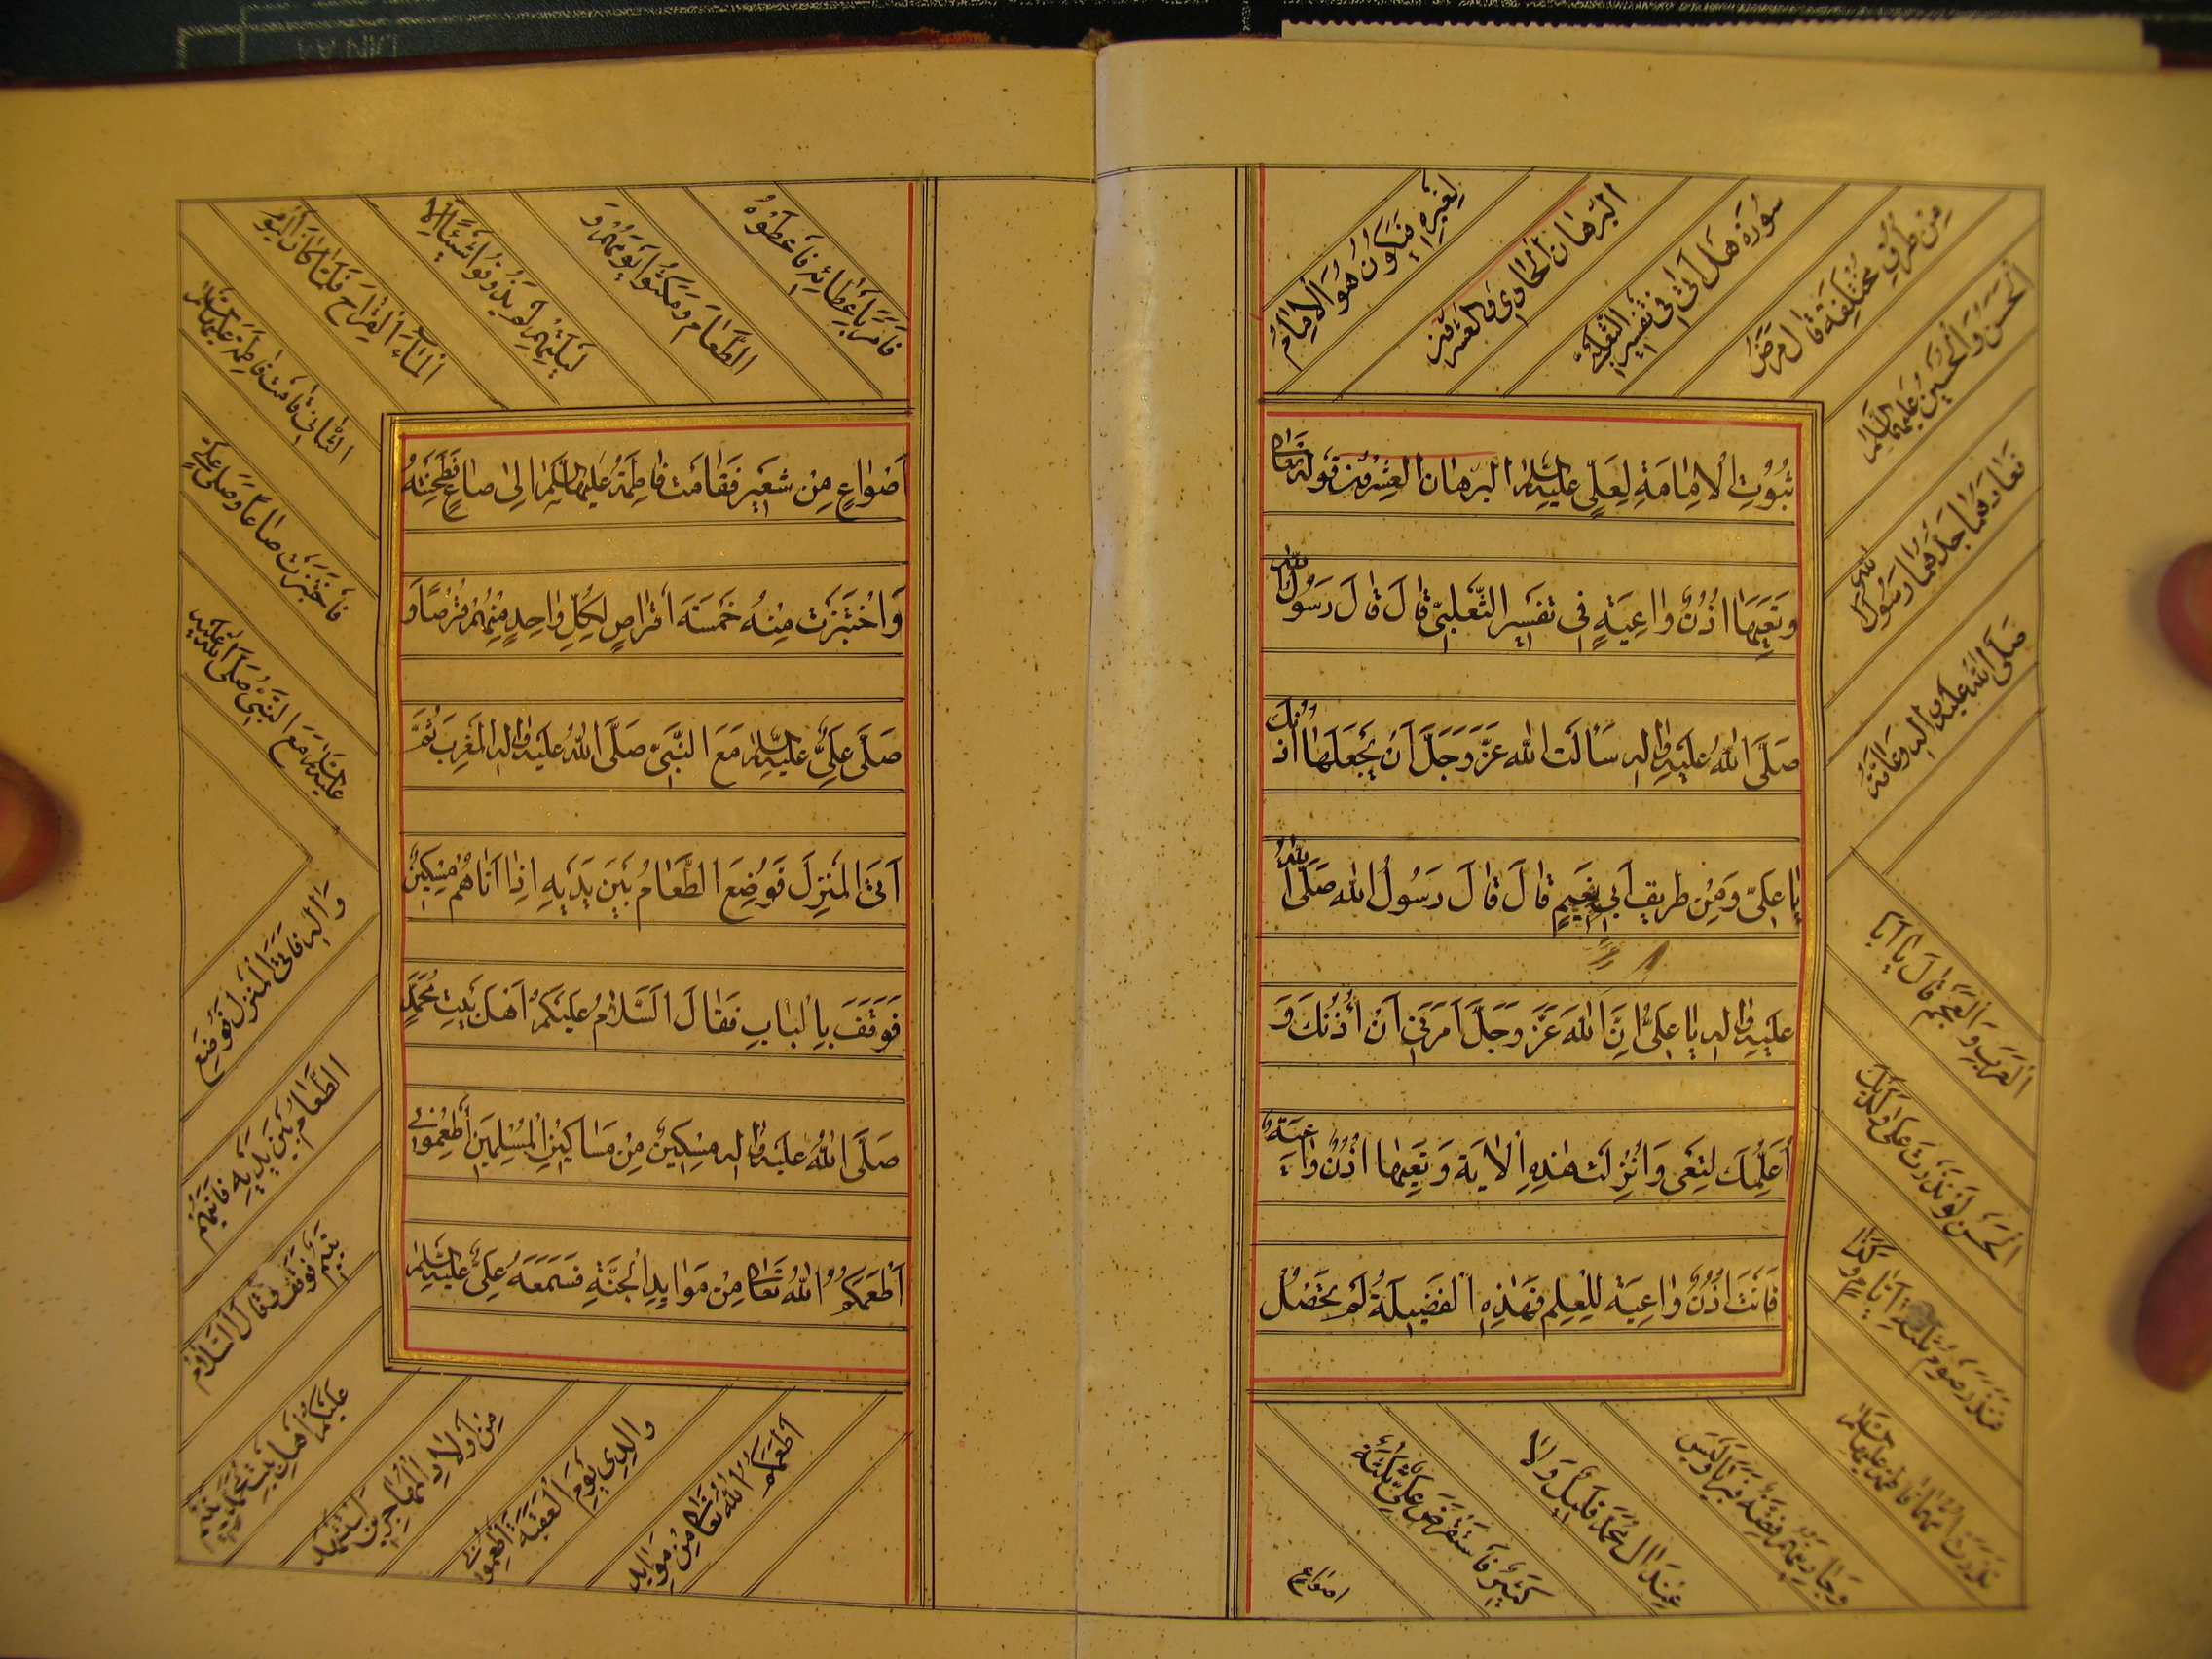 ثُبُوتِ الْاِمَامَةِ لِعَلِيٍّ عَلَيْهِ السَّلَامُ البرهان العشرون قوله تعالى
وَتَعِيَهَا اُذُنٌ وَاعِيَةٌ فِي تَفْسِيرِ الثَّعْلَبِيِّ قَالَ قَالَ رَسُولُ اللّٰهِ
صَلَّى اللّٰهُ عَلَيْهِ وَاٰلِهِ سَأَلْتُ اللّٰهَ عَزَّ وَجَلَّ اَنْ يَجْعَلَهَا اُذُنَكَ
يَا عَلِيُّ وَمِنْ طَرِيقِ اَبِي نُعَيْمٍ قَالَ قَالَ رَسُولُ اللّٰهِ صَلَّى اللّٰهُ
عَلَيْهِ وَاٰلِهِ يَا عَلِيُّ اِنَّ اللّٰهَ عَزَّ وَجَلَّ اَمَرَنِي اَنْ أُدْنِكَ وَ
أُعَلِّمَكَ لِتَعِيَ وَاُنْزِلَتْ هٰذِهِ الْاٰيَةُ وَتَعِيَهَا اُذُنٌ وَاعِيَةٌ
فَاَنْتَ اُذُنٌ وَاعِيَةٌ لِلْعِلْمِ فَهٰذِهِ الْفَضِيلَةُ لَمْ تَحْصُلْ
لِغَيْرِهِ فَيَكُونُ هُوَ الْاِمَامُ
البرهان الحادي والعشرون
سُورَةُ هَلْ اَتٰى فِي تَفْسِيرِ الثَّعْلَبِيِّ
مِنْ طُرُقٍ مُخْتَلِفَةٍ قَالَ مَرِضَ
الْحَسَنُ وَالْحُسَيْنُ عَلَيْهِمَا السَّلَامُ
فَعَادَهُمَا جَدُّهُمَا رَسُولُ اللّٰهِ
صَلَّى اللّٰهُ عَلَيْهِ وَاٰلِهِ وَعَامَّةُ
الْعَرَبِ وَالْعَجَمِ قَالَ يَا اَبَا
الْحَسَنِ لَوْ نَذَرْتَ عَلٰى وَلَدَيْكَ
فَنَذَرَ صَوْمَ ثَلٰثَةِ اَيَّامٍ وَكَذَا
نَذَرَتْ اُمُّهُمَا فَاطِمَةُ عَلَيْهَا السَّلَامُ
وَجَارِيَتُهُمْ فِضَّةُ فَبَرِءَا وَلَيْسَ
عِنْدَ اٰلِ مُحَمَّدٍ قَلِيلٌ وَلَا
كَثِيرٌ فَاسْتَقْرَضَ عَلِيٌّ ثَلٰثَةَ
اصواع
اَصْوَاعٍ مِنْ شَعِيرٍ فَقَامَتْ فَاطِمَةُ عَلَيْهَا السَّلَامُ اِلٰى صَاعٍ فَطَحَنَتْهُ
وَاخْتَبَزَتْ مِنْهُ خَمْسَةَ اَقْرَاصٍ لِكُلِّ وَاحِدٍ مِنْهُمْ قُرْصًا وَ
صَلَّى عَلِيٌّ عَلَيْهِ السَّلَامُ مَعَ النَّبِيِّ صَلَّى اللّٰهُ عَلَيْهِ وَاٰلِهِ الْمَغْرِبَ ثُمَّ
اَتَى الْمَنْزِلَ فَوُضِعَ الطَّعَامُ بَيْنَ يَدَيْهِ اِذَا اَتَاهُمْ مِسْكِينٌ
فَوَقَفَ بِالْبَابِ فَقَالَ اَلسَّلَامُ عَلَيْكُمْ اَهْلَ بَيْتِ مُحَمَّدٍ
صَلَّى اللّٰهُ عَلَيْهِ وَاٰلِهِ مِسْكِينٌ مِنْ مَسَاكِينِ الْمُسْلِمِينَ أَطْعِمُونِي
اَطْعَمَكُمُ اللّٰهُ تَعَالٰى مِنْ مَوَايِدِ الْجَنَّةِ فَسَمِعَهُ عَلِيٌّ عَلَيْهِ السَّلَامُ
فَاَمَرَ بِاِعْطَائِهِ فَاَعْطَوْهُ
الطَّعَامَ وَمَكَثُوا يَوْمَهُمْ وَ
لَيْلَتَهُمْ لَمْ يَذُوقُوا شَيْئًا اِلَّا
الْمَاءَ الْقَرَاحَ فَلَمَّا كَانَ الْيَوْمُ
الثَّانِي قَامَتْ فَاطِمَةُ عَلَيْهَا السَّلَامُ
فَاخْتَبَزَتْ صَاعًا وَصَلَّى عَلِيٌّ
عَلَيْهِ السَّلَامُ مَعَ النَّبِيِّ صَلَّى اللّٰهُ عَلَيْهِ
وَاٰلِهِ فَاَتَى الْمَنْزِلَ فَوُضِعَ
الطَّعَامُ بَيْنَ يَدَيْهِ فَاَتَيهُمْ
يَتِيمٌ فَوَقَفَ فَقَالَ السَّلَامُ
عَلَيْكُمْ اَهْلَ بَيْتِ مُحَمَّدٍ يَتِيمٌ
مِنْ اَوْلَادِ الْمُهَاجِرِينَ اسْتُشْهِدَ
وَالِدِي يَوْمَ الْعَقَبَةِ اَطْعِمُونِي
اَطْعَمَكُمُ اللّٰهُ تَعَالٰى مِنْ مَوَايِدِ